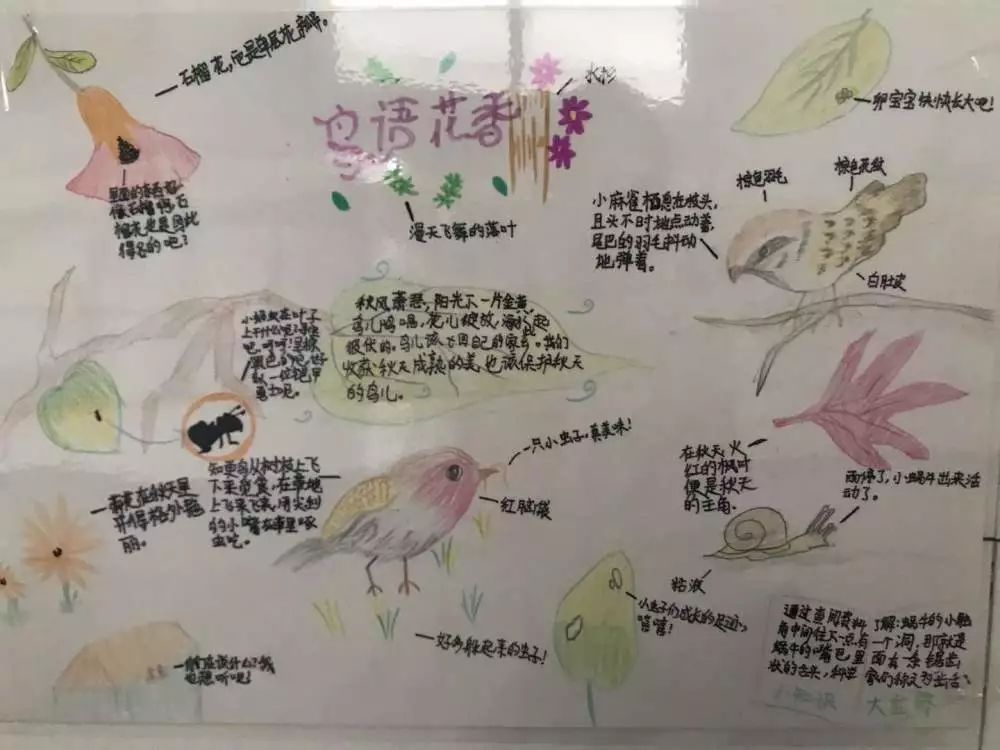 石榴花,它是单层花瓣。
鸟语花香
水杉
卵宝宝快快长大吧!
漫天飞舞的落叶
小麻雀栖息在枝头,
且头不时地点动着,
尾巴的羽毛抖动
地弹着。
棕色羽毛
棕色花纹
白肚皮
像石榴吗?石
榴花是是因此
得名的吧?
秋风萧瑟,阳光下一片金黄,
鸟儿鸣唱,花儿绽放,海水起
很伏的。鸟儿该飞回自己的家乡。我们
收获秋天成熟的美,也该保护秋天
的鸟儿。
小蚂蚁在叶子
上干什么呢?
一只小虫子,真美味!
红脑袋
知更鸟从树枝上飞
下来觅食,在草地
上飞来飞来,用尖刻
的小嘴在草里啄
虫吃。
丽。
在秋天,火
红的枫叶
便是秋天
的主角。
雨停了,小蜗牛出来活
动了。
粘液
小虫子们成长的足迹,
嘻嘻!
好多躲起来的虫子!
也想听吧!
通过查阅资料了解:蜗牛的小触
角中间往下一点有一个洞,那就是
蜗牛的嘴巴里面有一条锯齿
状的舌头,科学家们称之为齿舌。
小知识